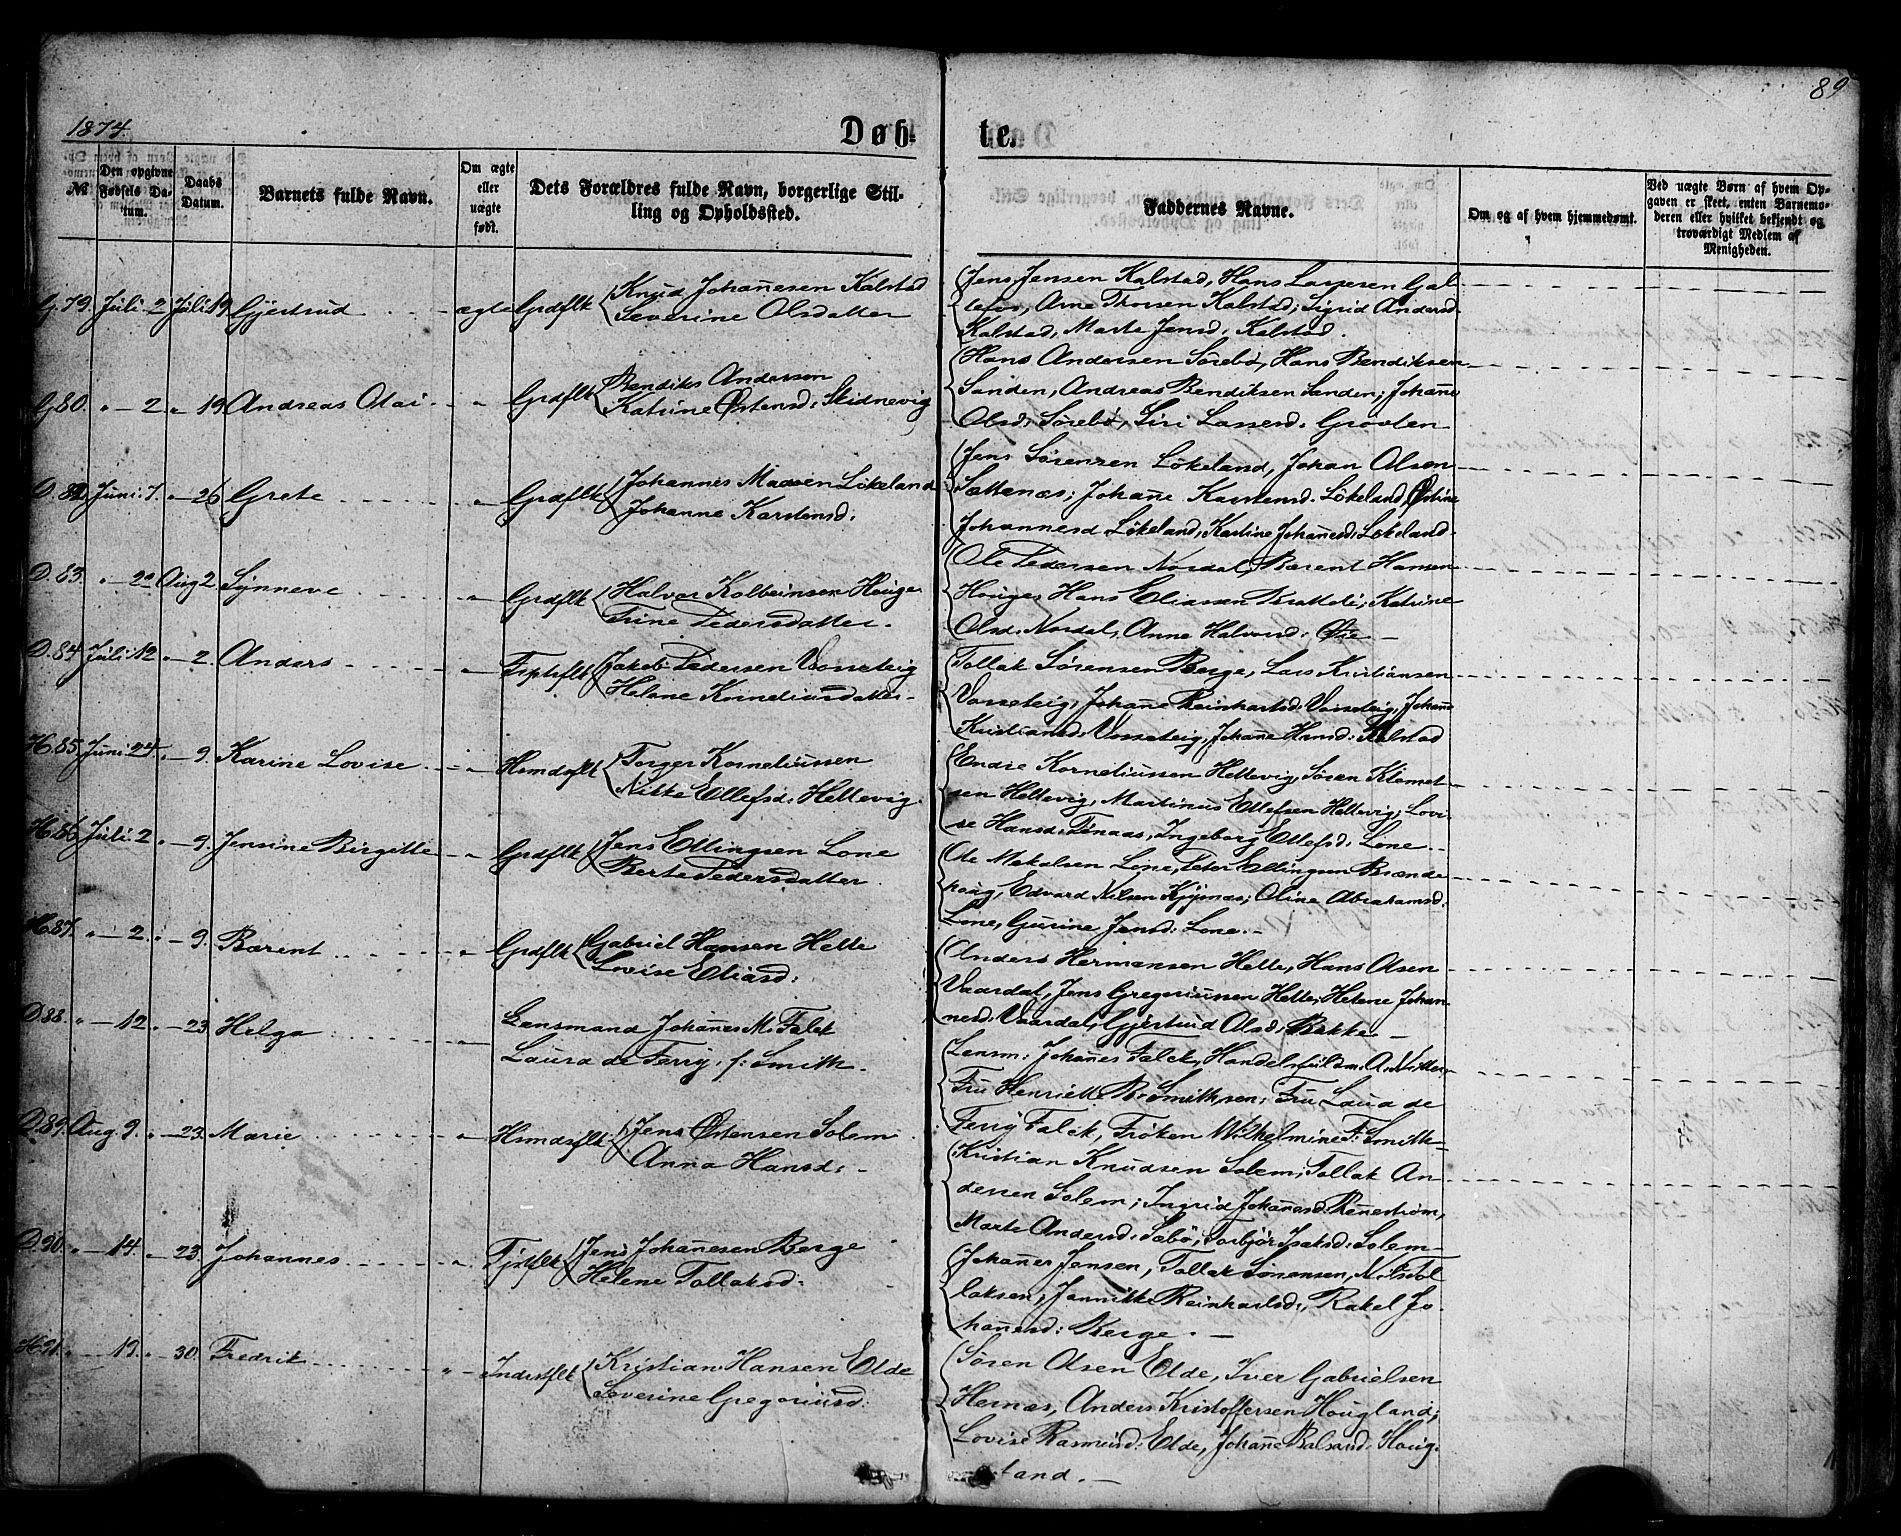 89
1874.
Døb-
te.
№
Den opgivne Fødsels Datum.
Daabs Datum.
Barnets fulde Navn.
Om ægte eller uægte født.
Dets Forældres fulde Navn, borgerlige Stilling og Opholdssted.
Faddernes Navne.
Om og af hvem hjemmedøbt.
Ved uægte Børn af hvem Opgaven er skeet, enten Barnemoderen eller hvilket bekjendt og troværdigt Medlem af Menigheden.
G. 79. Juli 2 Juli 19 Gjertrud ægte Grdflk Knud Johañesen Kalstad
Severine Olsdatter
Jens Jensen Kalstad, Hans
Arne Thorsen Kalstad; Sigrid Andersd.
Kalstad, Marte Jensd. Kalstad.
G 80. " — 2 " 19 Andreas Olai " Grdflk Bendiks Andersen
Katrine Østensd: Skidnevig
Hans Andersen Sørebø, Hans Bendiksen
Sanden, Andreas Bendiksen Sanden; Johañe
Olsd: Sørebø, Siri Lassesd.
D. 82. Juni 7. " — 26 Grete " Grdflk Johannes Madsen Løkeland
Johanne Karstensd:
Jens Sørensen Løkeland, Johan Olsen
Sættenæs; Johañe Karstensd. Løkeland,
Johannesd Løkeland, Johañesd: Løkeland
D. 83. " — 20 Aug 2 Synneve " Grdflk Halvor Kolbeinsen Houge
Trine Pedersdatter.
Ole Pedersen Nordal, Bærent Hansen
Houge, Hans Eliasen Katrine
Olsd: Nordal, Anne Halvorsd:
D. 84. Juli 12 " — 2. Anders " Jakob Pedersen Vasseteig
Helene Korneliusdatter
Tollak Sørensen Berge, Lars Kristiansen
Vasseteig; Johañe Reinhartsd: Vasseteig, Johañe
Kristiansd: Vasseteig, Johañe Hansd: Kalstad
H. 85. Juni 24. " — 9. Karine Lovise " Hsmdsflk Torger Korneliussen
Nikke Ellefsd: Hellevig.
Endre Korneliussen Hellevig, Søren Klemet-
sen Hellevig, Martinus Ellefsen Hellevig; Lovi-
se Hansd: Tenaas, Ingeborg Ellefsd: Lone.
H. 86. Juli 2 " — 9. Jensine Birgitte " Grdflk Jens Ellingsen Lone
Berte Pedersdatter.
Ole Mikalsen Lone, Peter Ellingsen Brænde-
houg, Edvard Nilsen Oline Abrahamsd:
Lone, Gurine Jensd: Lone. —
H. 87. " — 2. " — 9. Bærent " Grdflk Gabriel Hansen Helle
Lovise Eliasd:
Anders Hermansen Helle, Hans Olsen
Vaardal, Jens Gregoriussen Helle; Helene Johan-
nesd: Vaardal, Gjertrud Olsd: Bakke —
D. 88. " — 12 " — 23 Helga " Lensmand Johañes M. Falck
Laura de Ferry, f: Smith.
Lensm: Johañes Falck,
Fru Henriette Fru Laura de
Ferry Falck, Frøken Wilhelmine
D. 89. Aug 9. " — 23. Marie " Hsmdsflk Jens Østensen Solem
Anna Hansd: —
Kristian Knudsen Solem; Tollak An-
dersen Solem; Ingrid Johañesd:
Marte Andersd: Sæbø, Isaksd: Solem
D. 90. " — 14. " — 23. Johannes " Jens Johañesen Berge
Helene Tollaksd:
Johañes Jensen, Tollak Sørensen, Nils Tol-
laksen; Jannikke Reinhartsd:, Rakel Jo-
hañesd: Berge. —
H 91. " — 19. " — 30. Fredrik " Inderstflk Kristian Hansen Elde
Severine Gregoriusd:
Søren Olsen Elde, Iver Gabrielsen
Hernæs, Anders Kristoffersen Hougland;
Lovise Rasmusd: Elde, Johañe Houg-
land. —